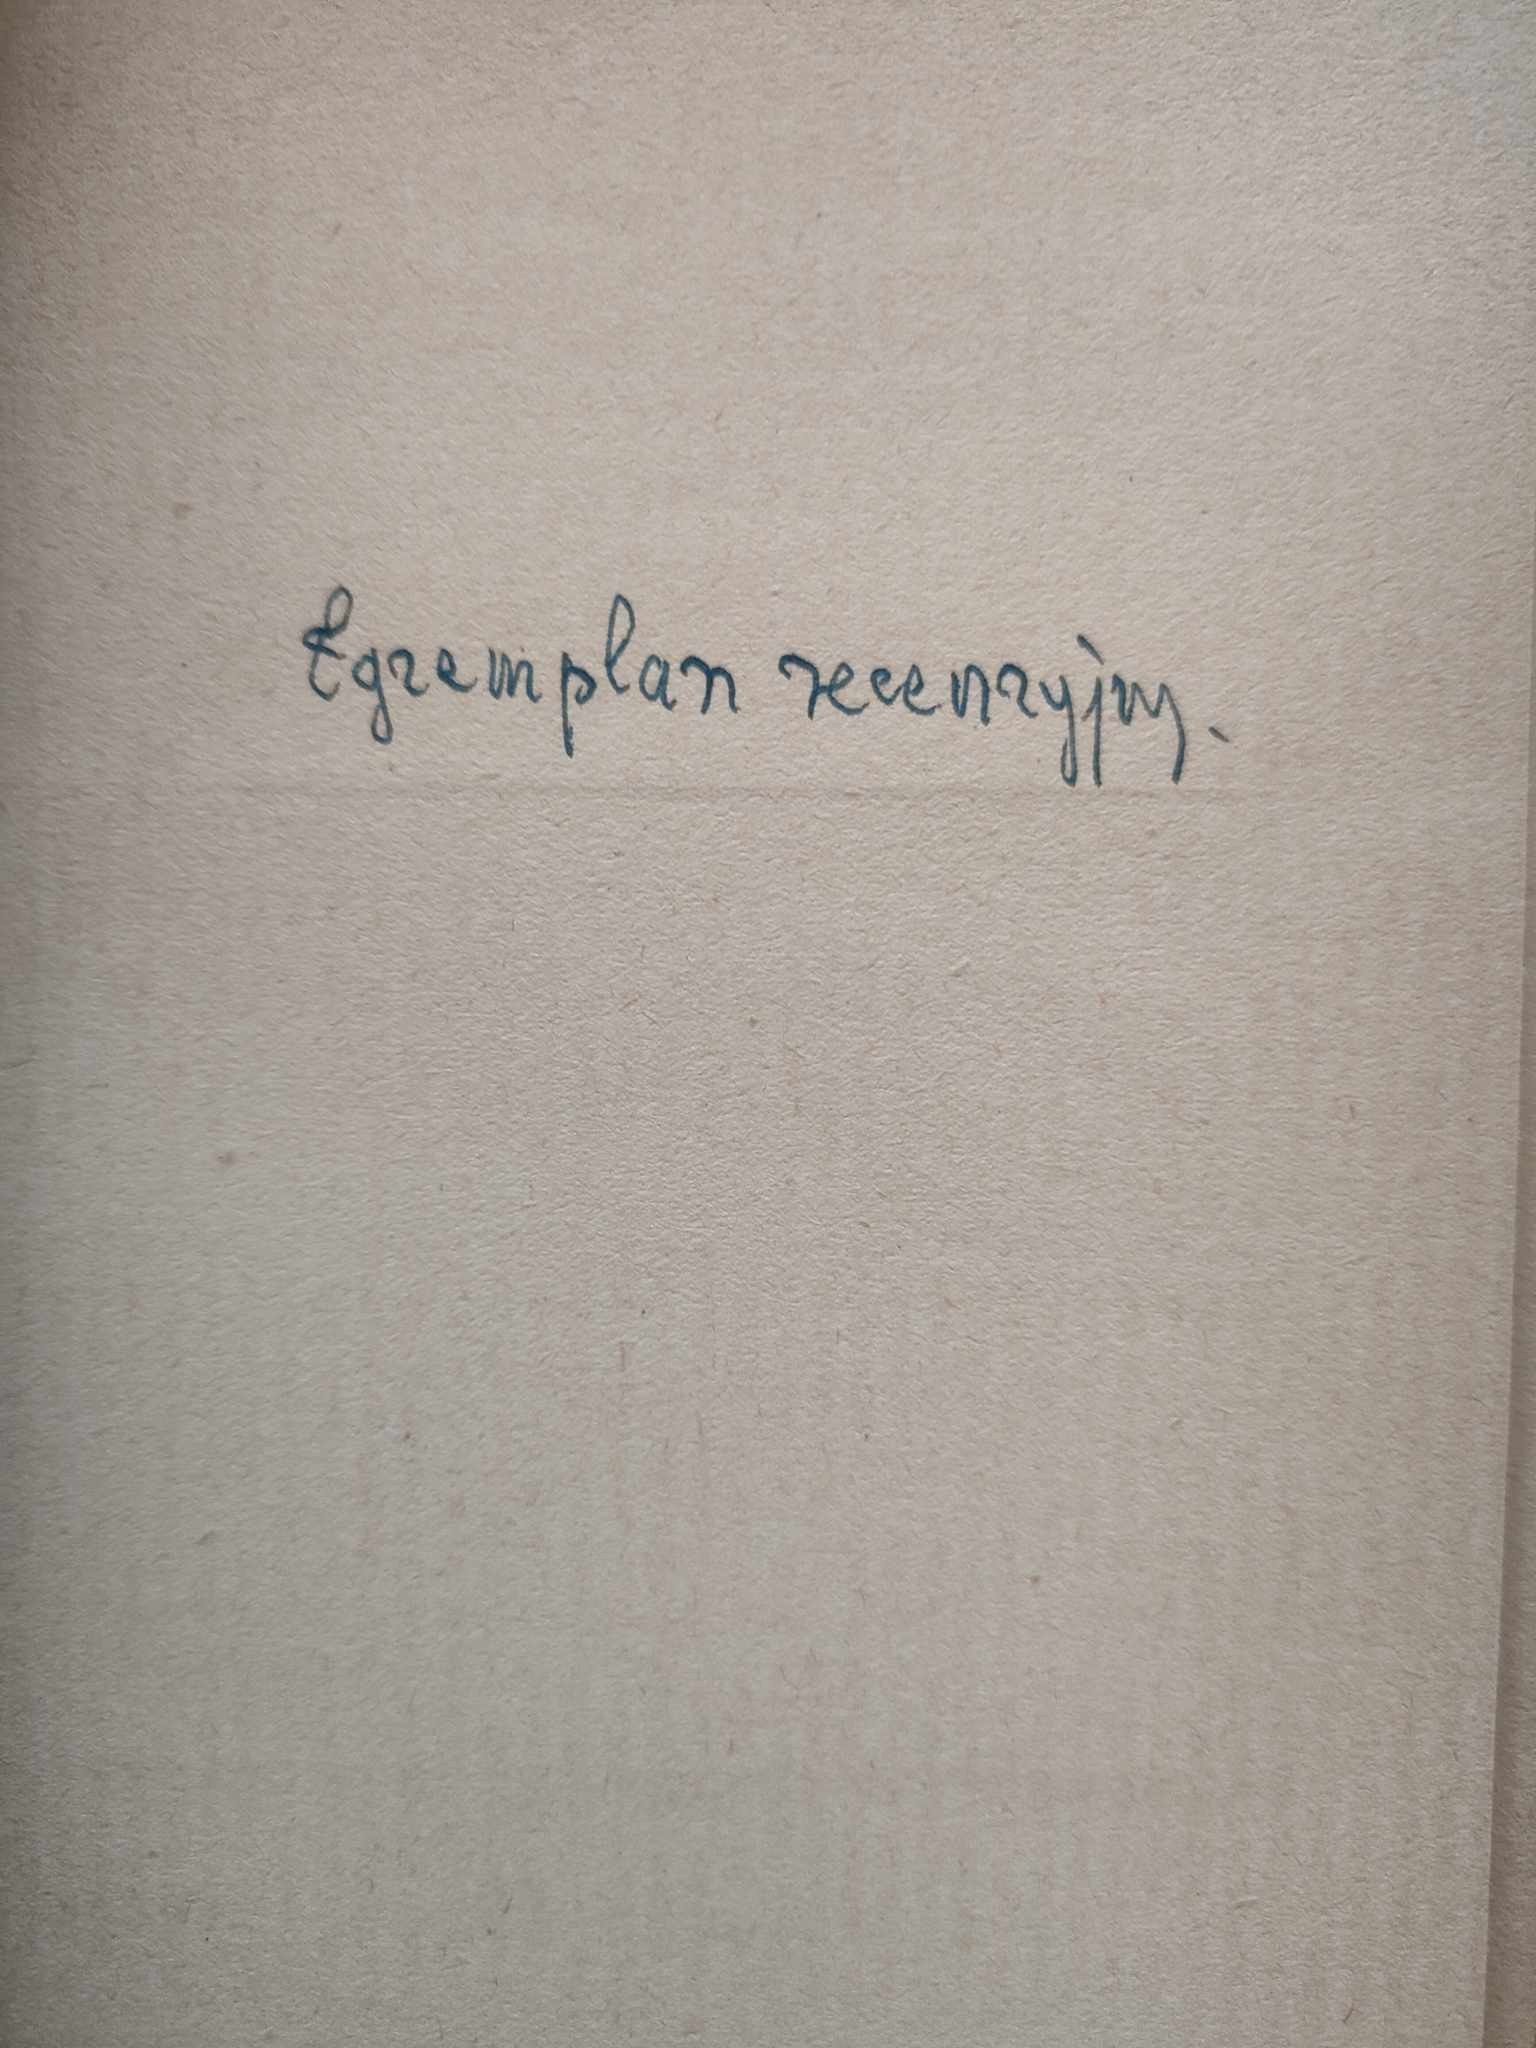 Egzemplarz recenzyjny.